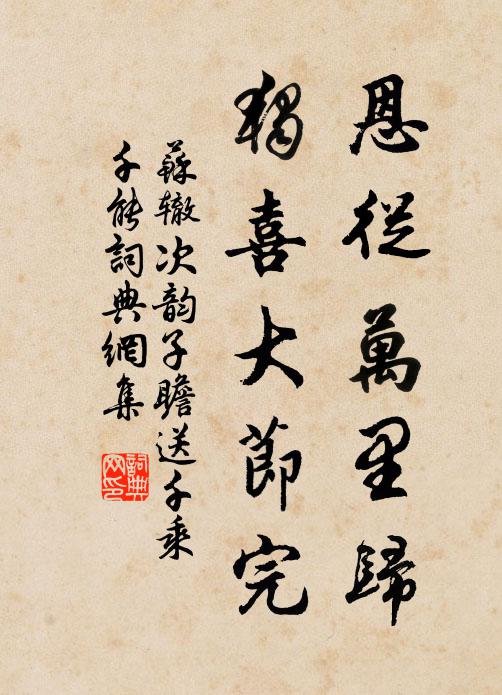 恩從萬里歸
獨喜大節完
蘇轍次韵子瞻送千乘
千能詞典網集
詞典
网印